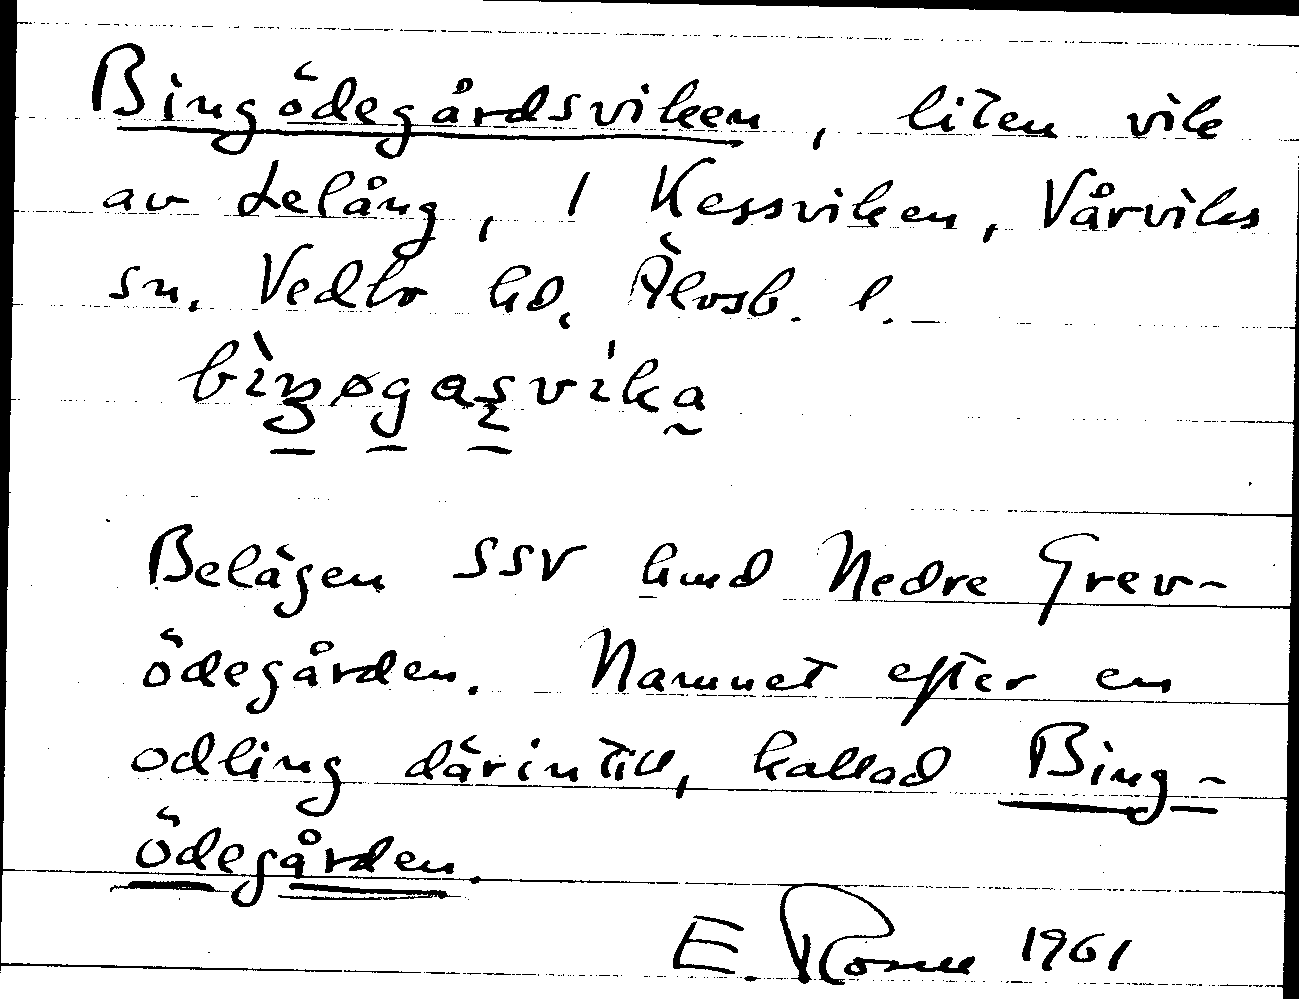 Bingödegårdsviken, liten vik
av Lelång, / Kessviken, Vårviks
sn. Vedbo hd. Älvsb. l.
Belägen SSV hmd Nedre Grev-
ödegården. Namnet efter en
odling därintill, kallad Bing-
ödegården.
E. 1961